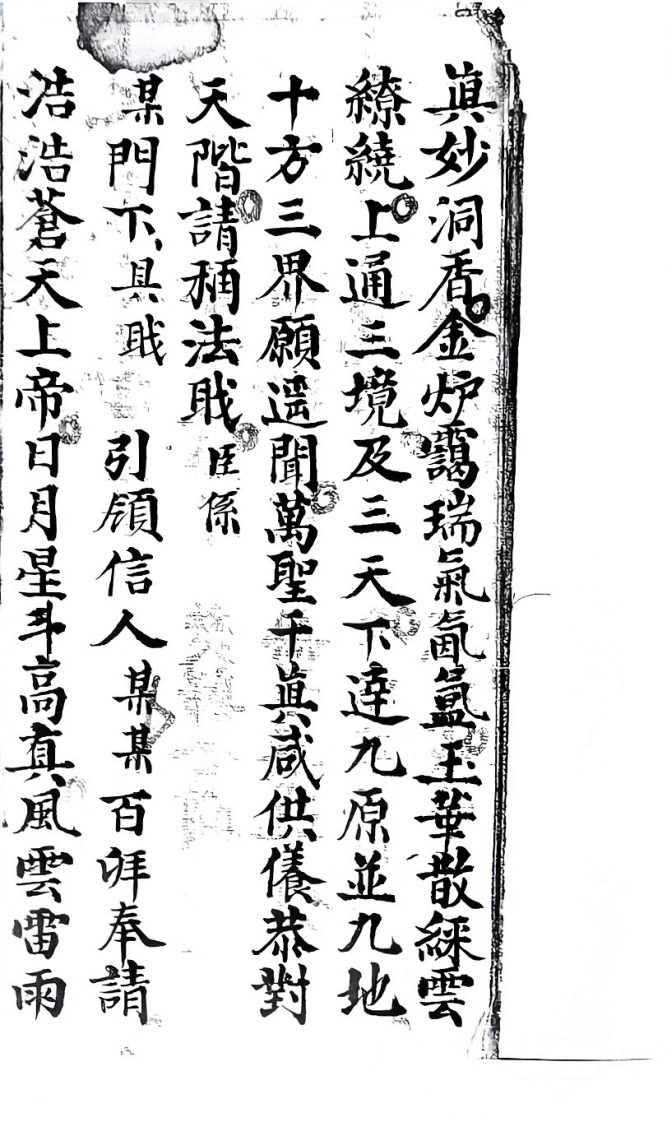 眞妙洞香金炉靄瑞氣氤氳玉華散綵雲
繚繞上通三境及三天下達九原並九地
十方三界願遥聞萬聖千眞咸供儀恭對
天階請稱法戝臣係
某門下具戝　引領信人某某百拜奉請
浩浩蒼天上帝日月星斗高真風雲雷雨